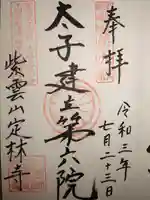 奉拝
令和三年
七月二十三日
太子建立第六院
紫雲山定林寺